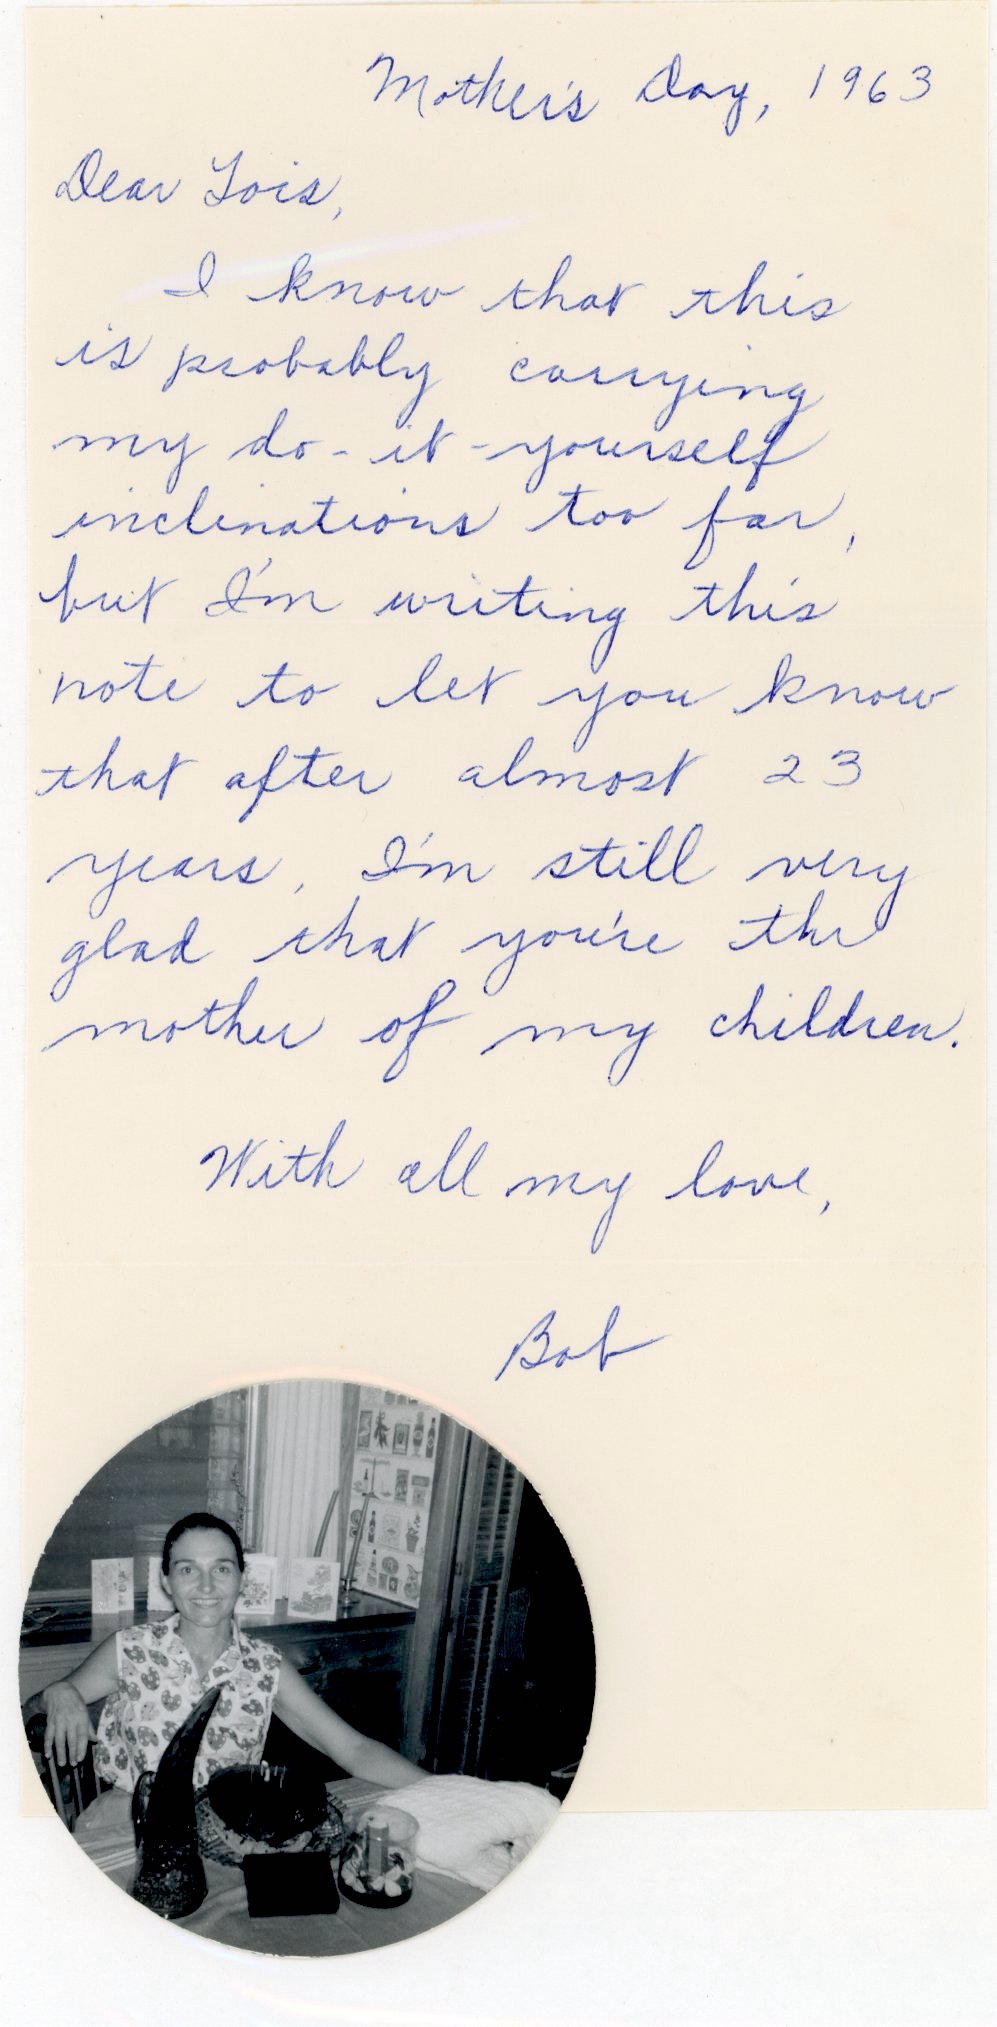 Mother's Day, 1963
Dear Lois,
I know that this
is probably carrying
my do-it-yourself
inclinations too far,
but I'm writing this
note to let you know
that after almost 23
years, I'm still very
glad that you're the
mother of my children.
With all my love,
Bob